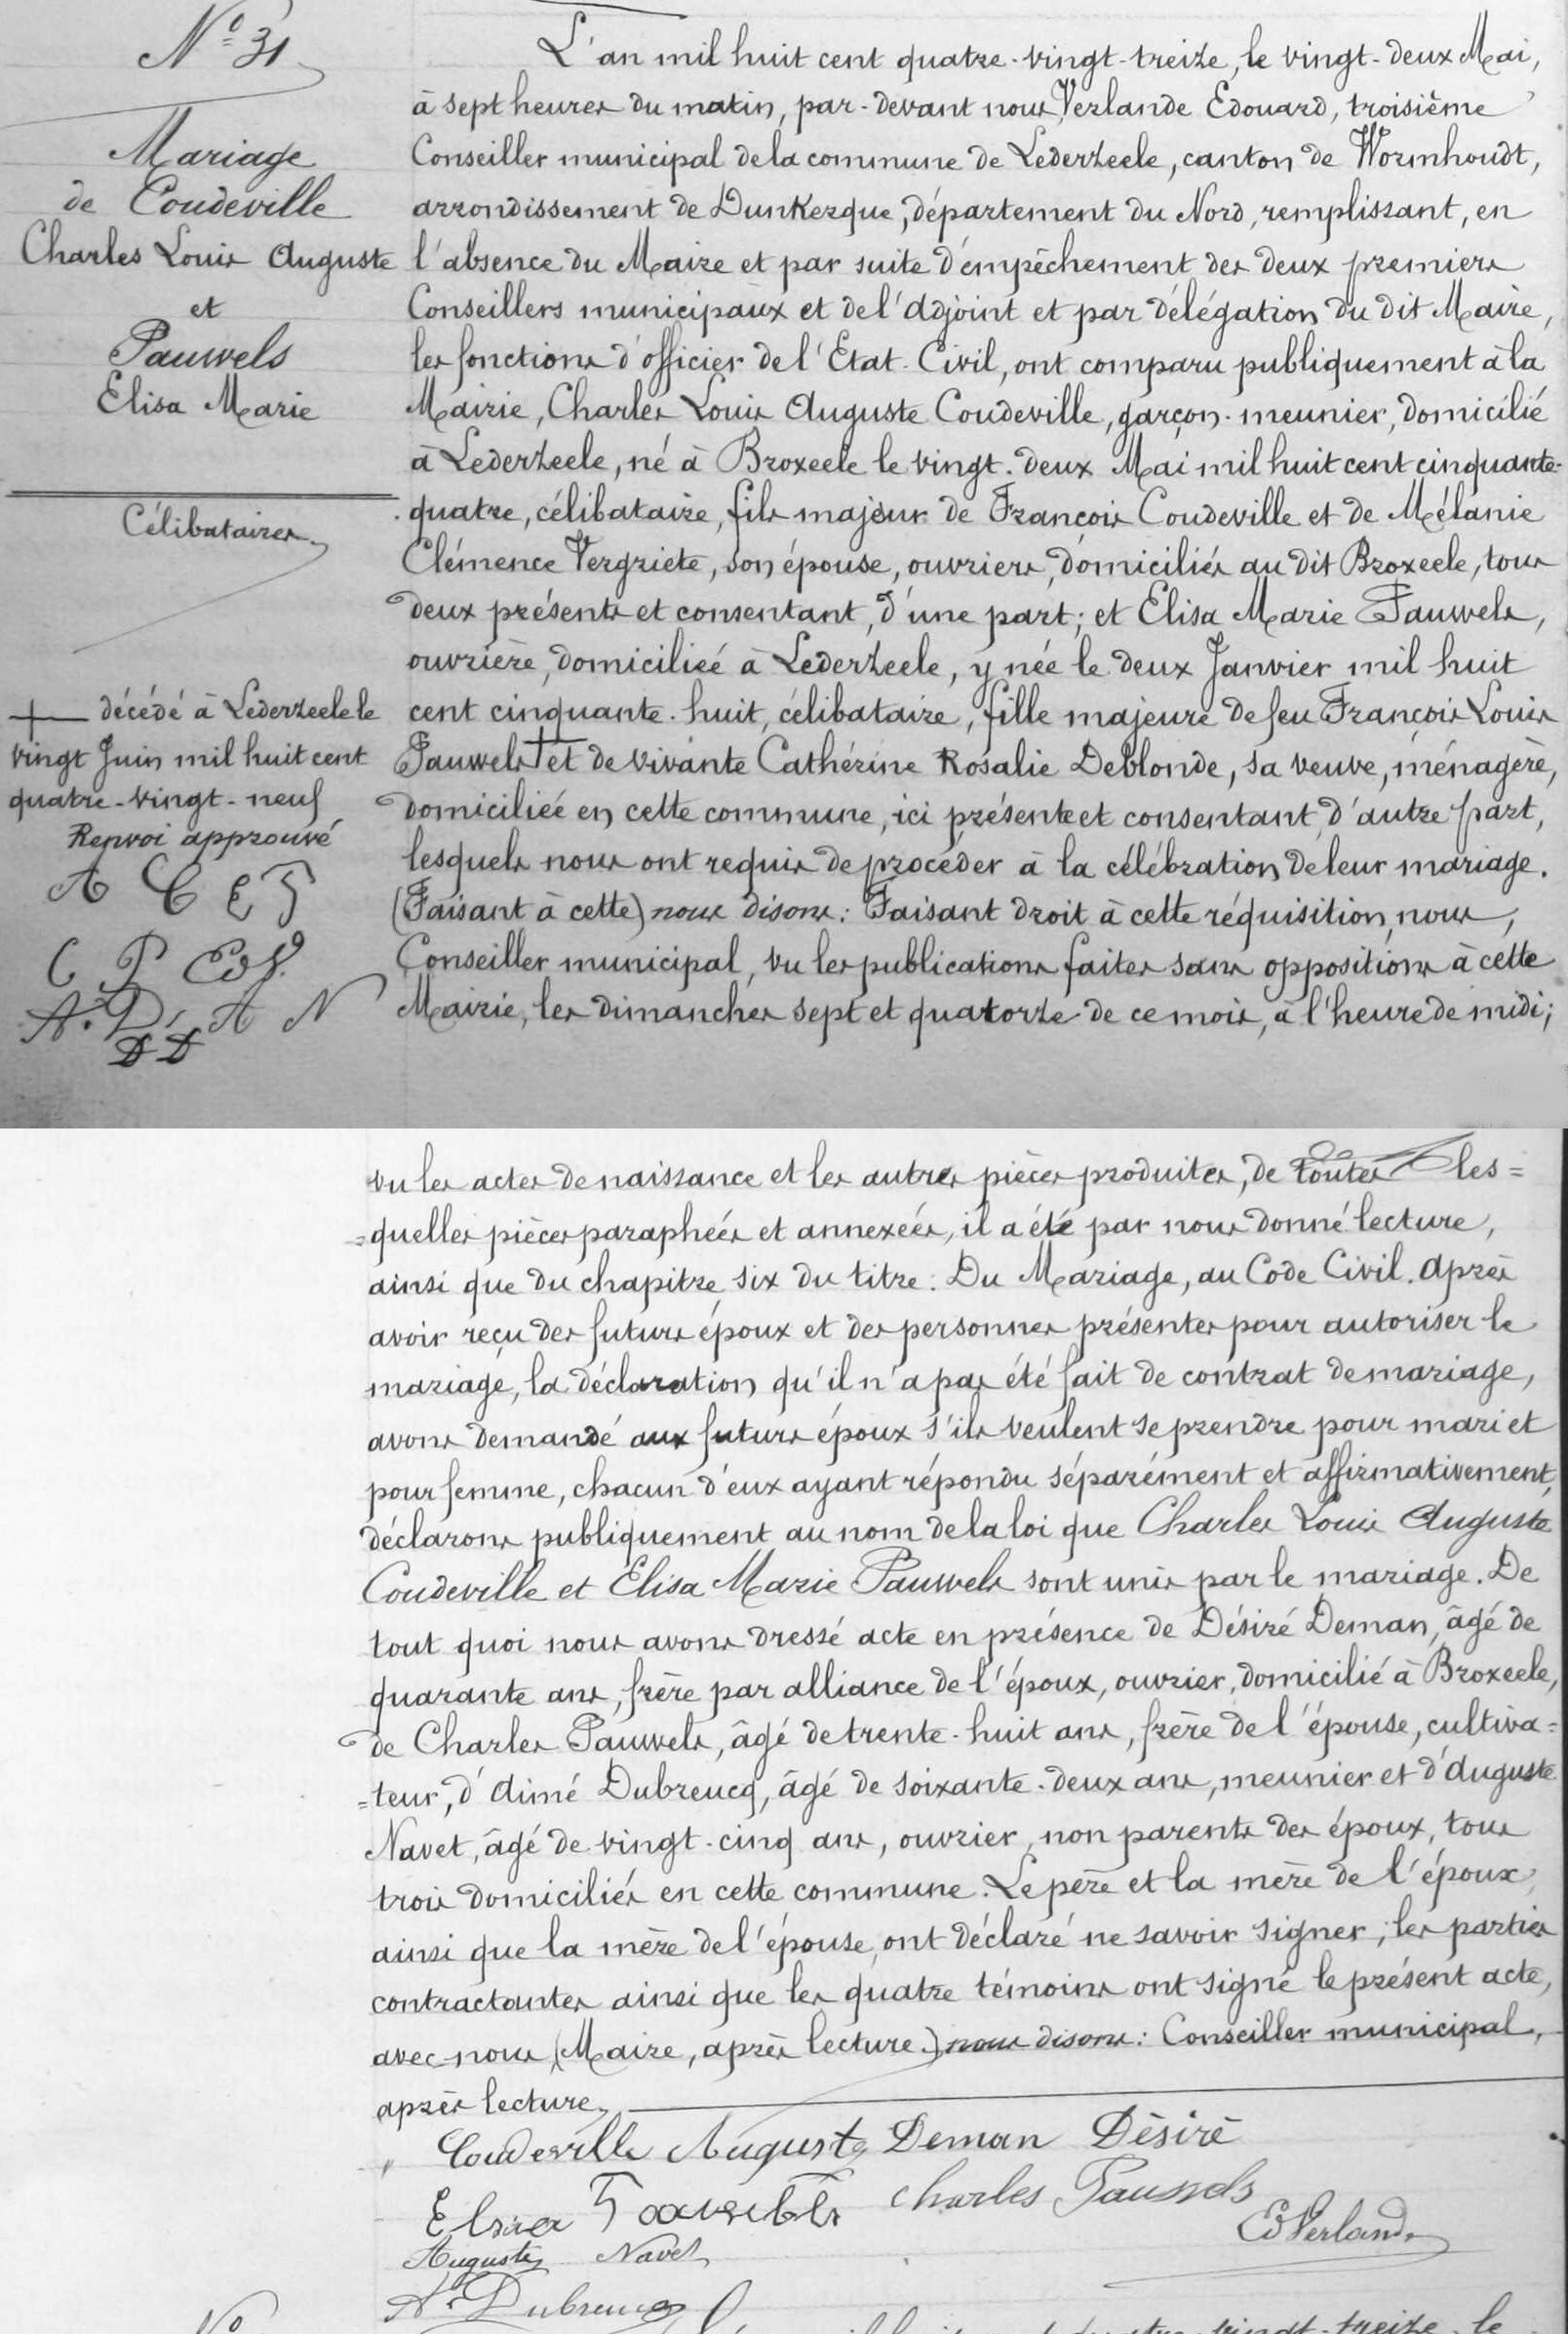 N° 31
Mariage
de Coudeville
Charles Louis Auguste
et
Pauwels
Elisa Marie
Célibataires
+ décédé à Lederzeele le
vingt Juin mil huit cent
quatre-vingt-neuf
Renvoi approuvé
A C E P
C P Ed V.
A. D. A N
D D
L'an mil huit cent quatre-vingt-treize, le vingt-deux Mai,
à sept heures du matin, par-devant nous, Verlande Edouard, troisième
Conseiller municipal de la commune de Lederzeele, canton de Wormhoudt,
arrondissement de Dunkerque, département du Nord, remplissant, en
l'absence du Maire et par suite d'empêchement des deux premiers
Conseillers municipaux et de l'adjoint et par délégation du dit Maire,
les fonctions d'officier de l'Etat-Civil, ont comparu publiquement à la
Mairie, Charles Louis Auguste Coudeville, garçon-meunier, domicilié
à Lederzeele, né à Broxeele le vingt-deux Mai mil huit cent cinquante-
quatre, célibataire, fils majeur de François Coudeville et de Mélanie
Clémence Vergriete, son épouse, ouvriers, domiciliés au dit Broxeele, tous
deux présents et consentant, d'une part; et Elisa Marie Pauwels,
ouvrière, domiciliée à Lederzeele, y née le deux Janvier mil huit
cent cinquante-huit, célibataire, fille majeure de feu François Louis
Pauwels + et de vivante Cathérine Rosalie Deblonde, sa veuve, ménagère,
domiciliée en cette commune, ici présente et consentant, d'autre part,
lesquels nous ont requis de procéder à la célébration de leur mariage.
(Faisant à cette) nous disons: Faisant droit à cette réquisition, nous,
Conseiller municipal, vu les publications faites sans oppositions à cette
Mairie, les dimanches sept et quatorze de ce mois, à l'heure de midi;
vu les actes de naissance et les autres pièces produites, de toutes les=
=quelles pièces paraphées et annexées, il a été par nous donné lecture,
ainsi que du chapitre six du titre: Du Mariage, au Code Civil. Après
avoir reçu des futurs époux et des personnes présentes pour autoriser le
mariage, la déclaration qu'il n'a pas été fait de contrat de mariage,
avons demandé aux futurs époux s'ils veulent se prendre pour mari et
pour femme, chacun d'eux ayant répondu séparément et affirmativement,
déclarons publiquement au nom de la loi que Charles Louis Auguste
Coudeville et Elisa Marie Pauwels sont unis par le mariage. De
tout quoi nous avons dressé acte en présence de Désiré Deman, âgé de
quarante ans, frère par alliance de l'époux, ouvrier, domicilié à Broxeele,
de Charles Pauwels, âgé de trente-huit ans, frère de l'épouse, cultiva=
=teur, d'Aimé Dubreucq, âgé de soixante-deux ans, meunier et d'Auguste
Navet, âgé de vingt-cinq ans, ouvrier, non parents des époux, tous
trois domiciliés en cette commune. Le père et la mère de l'époux,
ainsi que la mère de l'épouse, ont déclaré ne savoir signer; les parties
contractantes ainsi que les quatre témoins ont signé le présent acte,
avec nous (Maire, après lecture.) nous disons: Conseiller municipal,
après lecture.
Coudeville Auguste Deman Désiré
Elisa Pauwels Charles Pauwels
Ed Verlande
Auguste Navet
A. Dubreucq
N°
quatre-vingt-treize, le